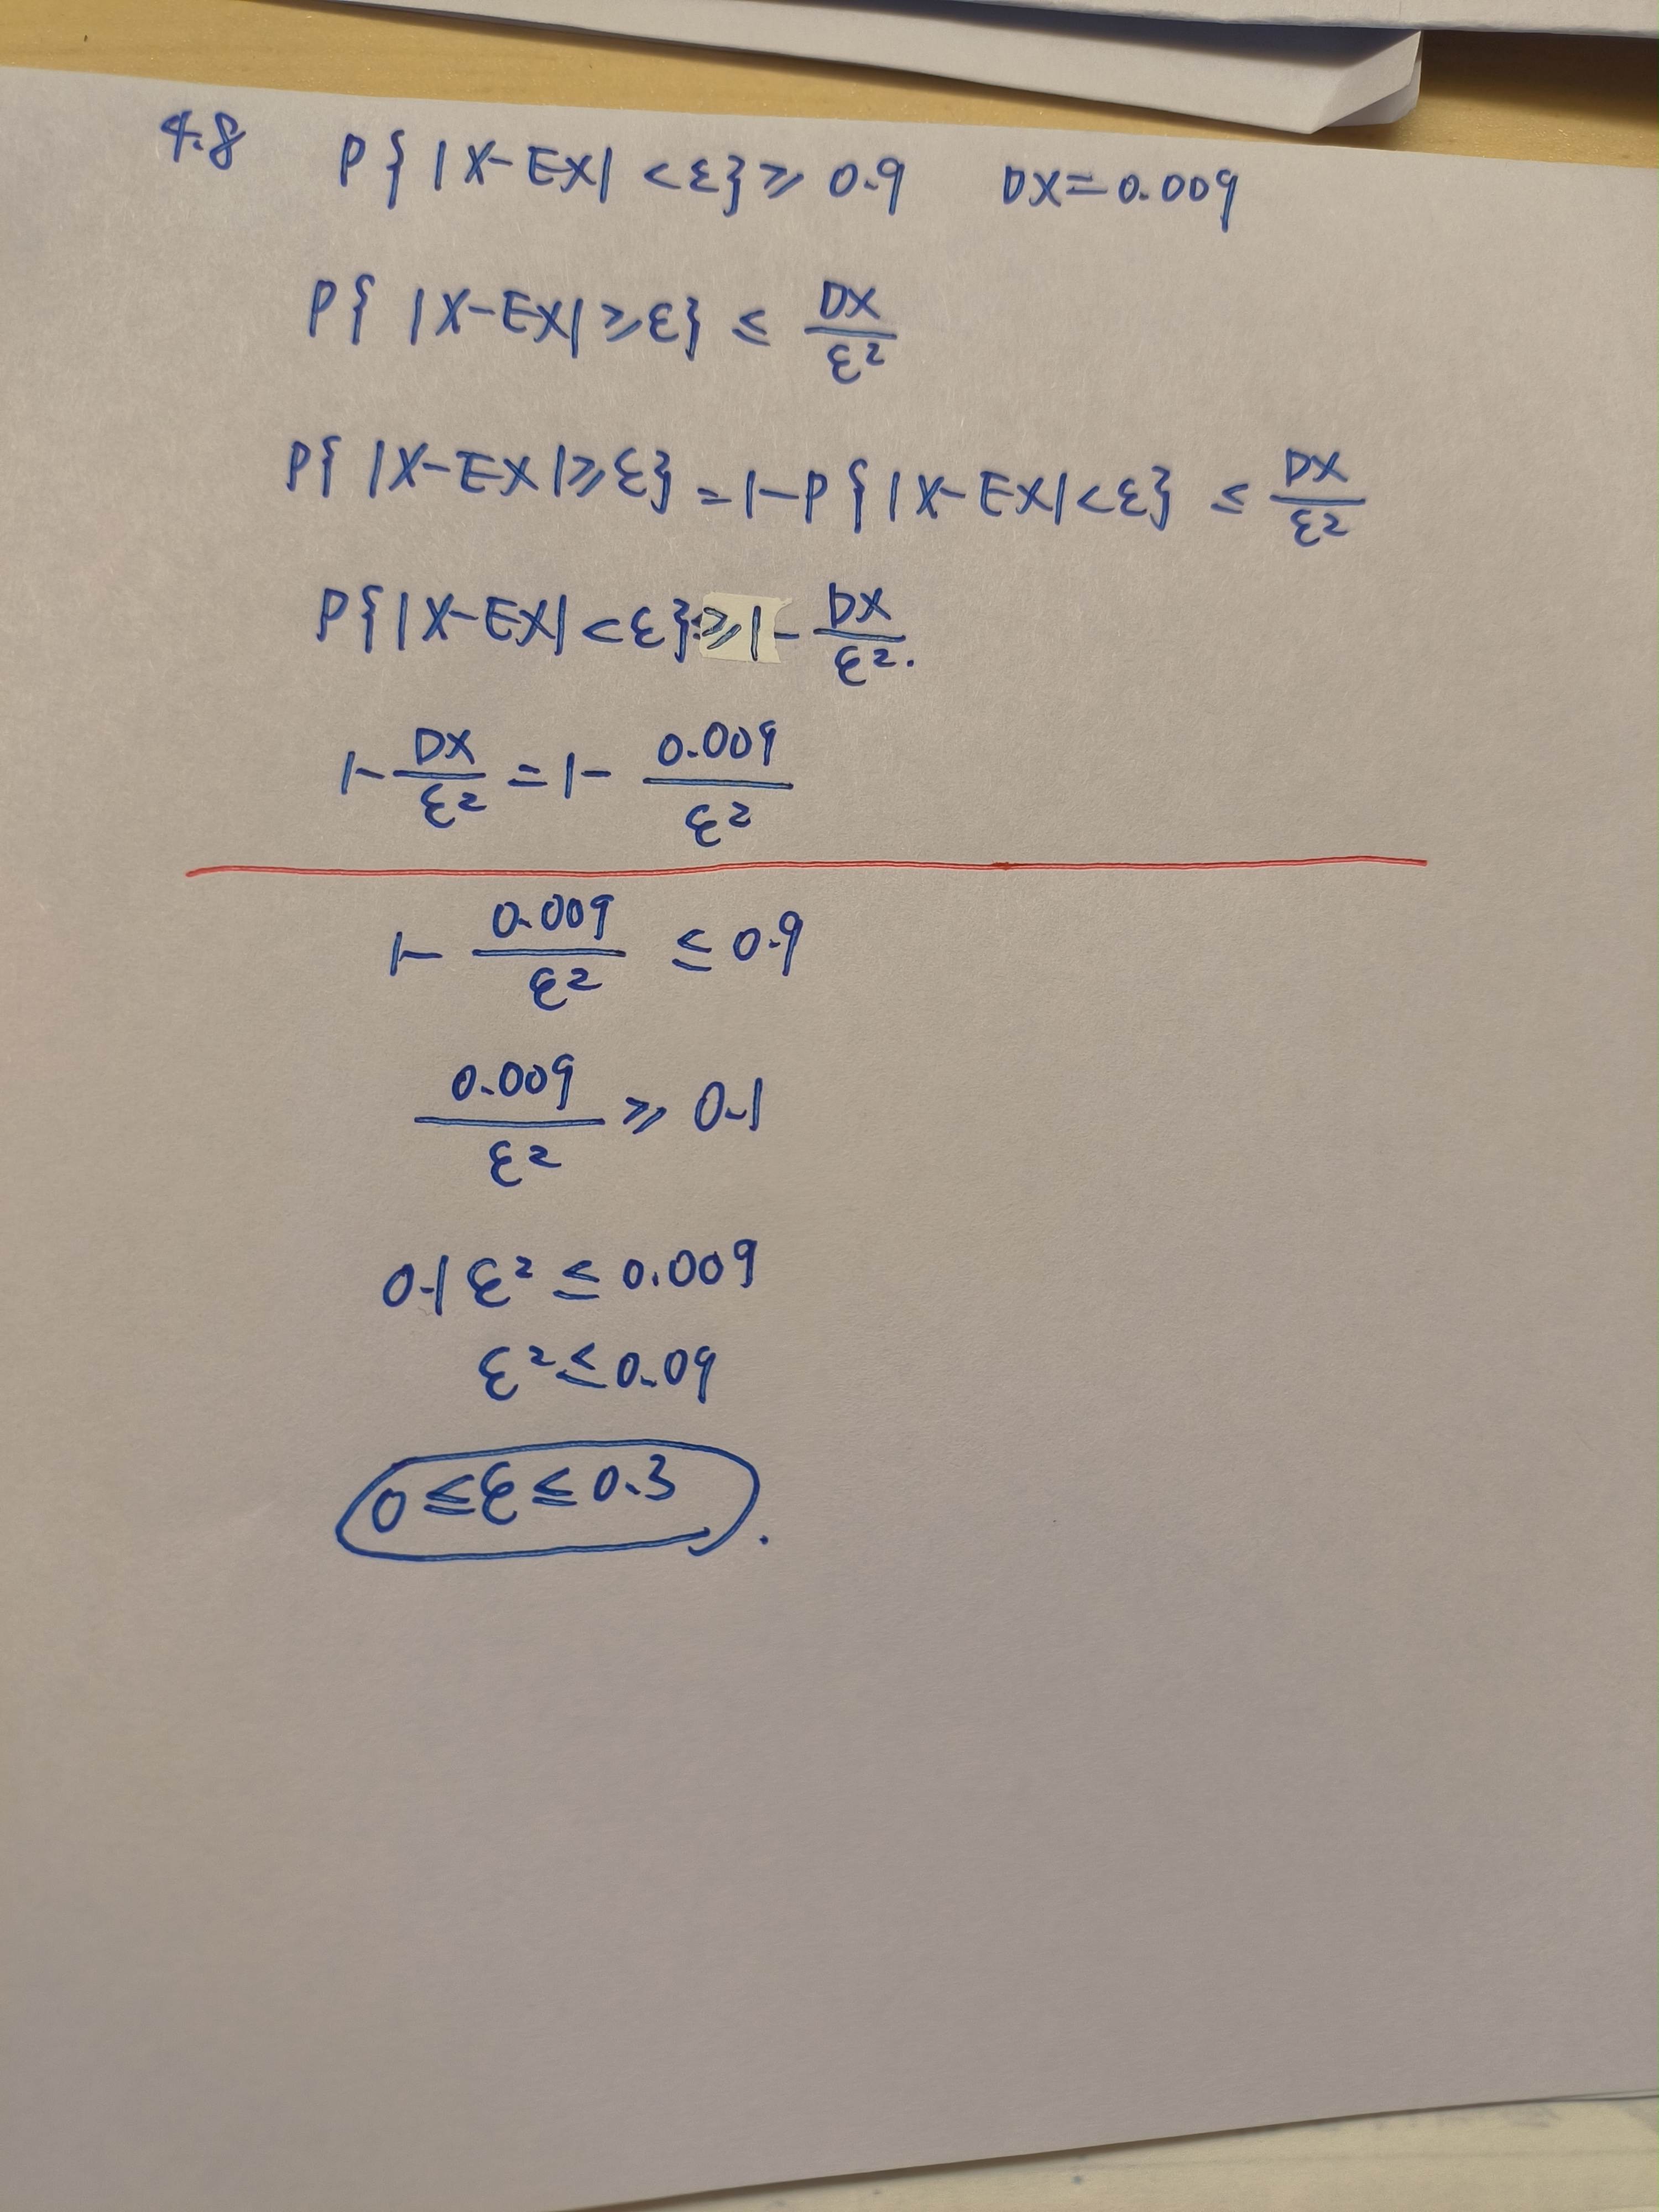 4.8 P{|X-EX|<ε}≥0.9 DX=0.009
P{|X-EX|≥ε}≤DX/ε²
P{|X-EX|≥ε}=1-P{|X-EX|<ε}≤DX/ε²
P{|X-EX|<ε}≥1-DX/ε².
1-DX/ε²=1-0.009/ε²
1-0.009/ε²≤0.9
0.009/ε²≥0.1
0.1ε²≤0.009
ε²≤0.09
0≤ε≤0.3.